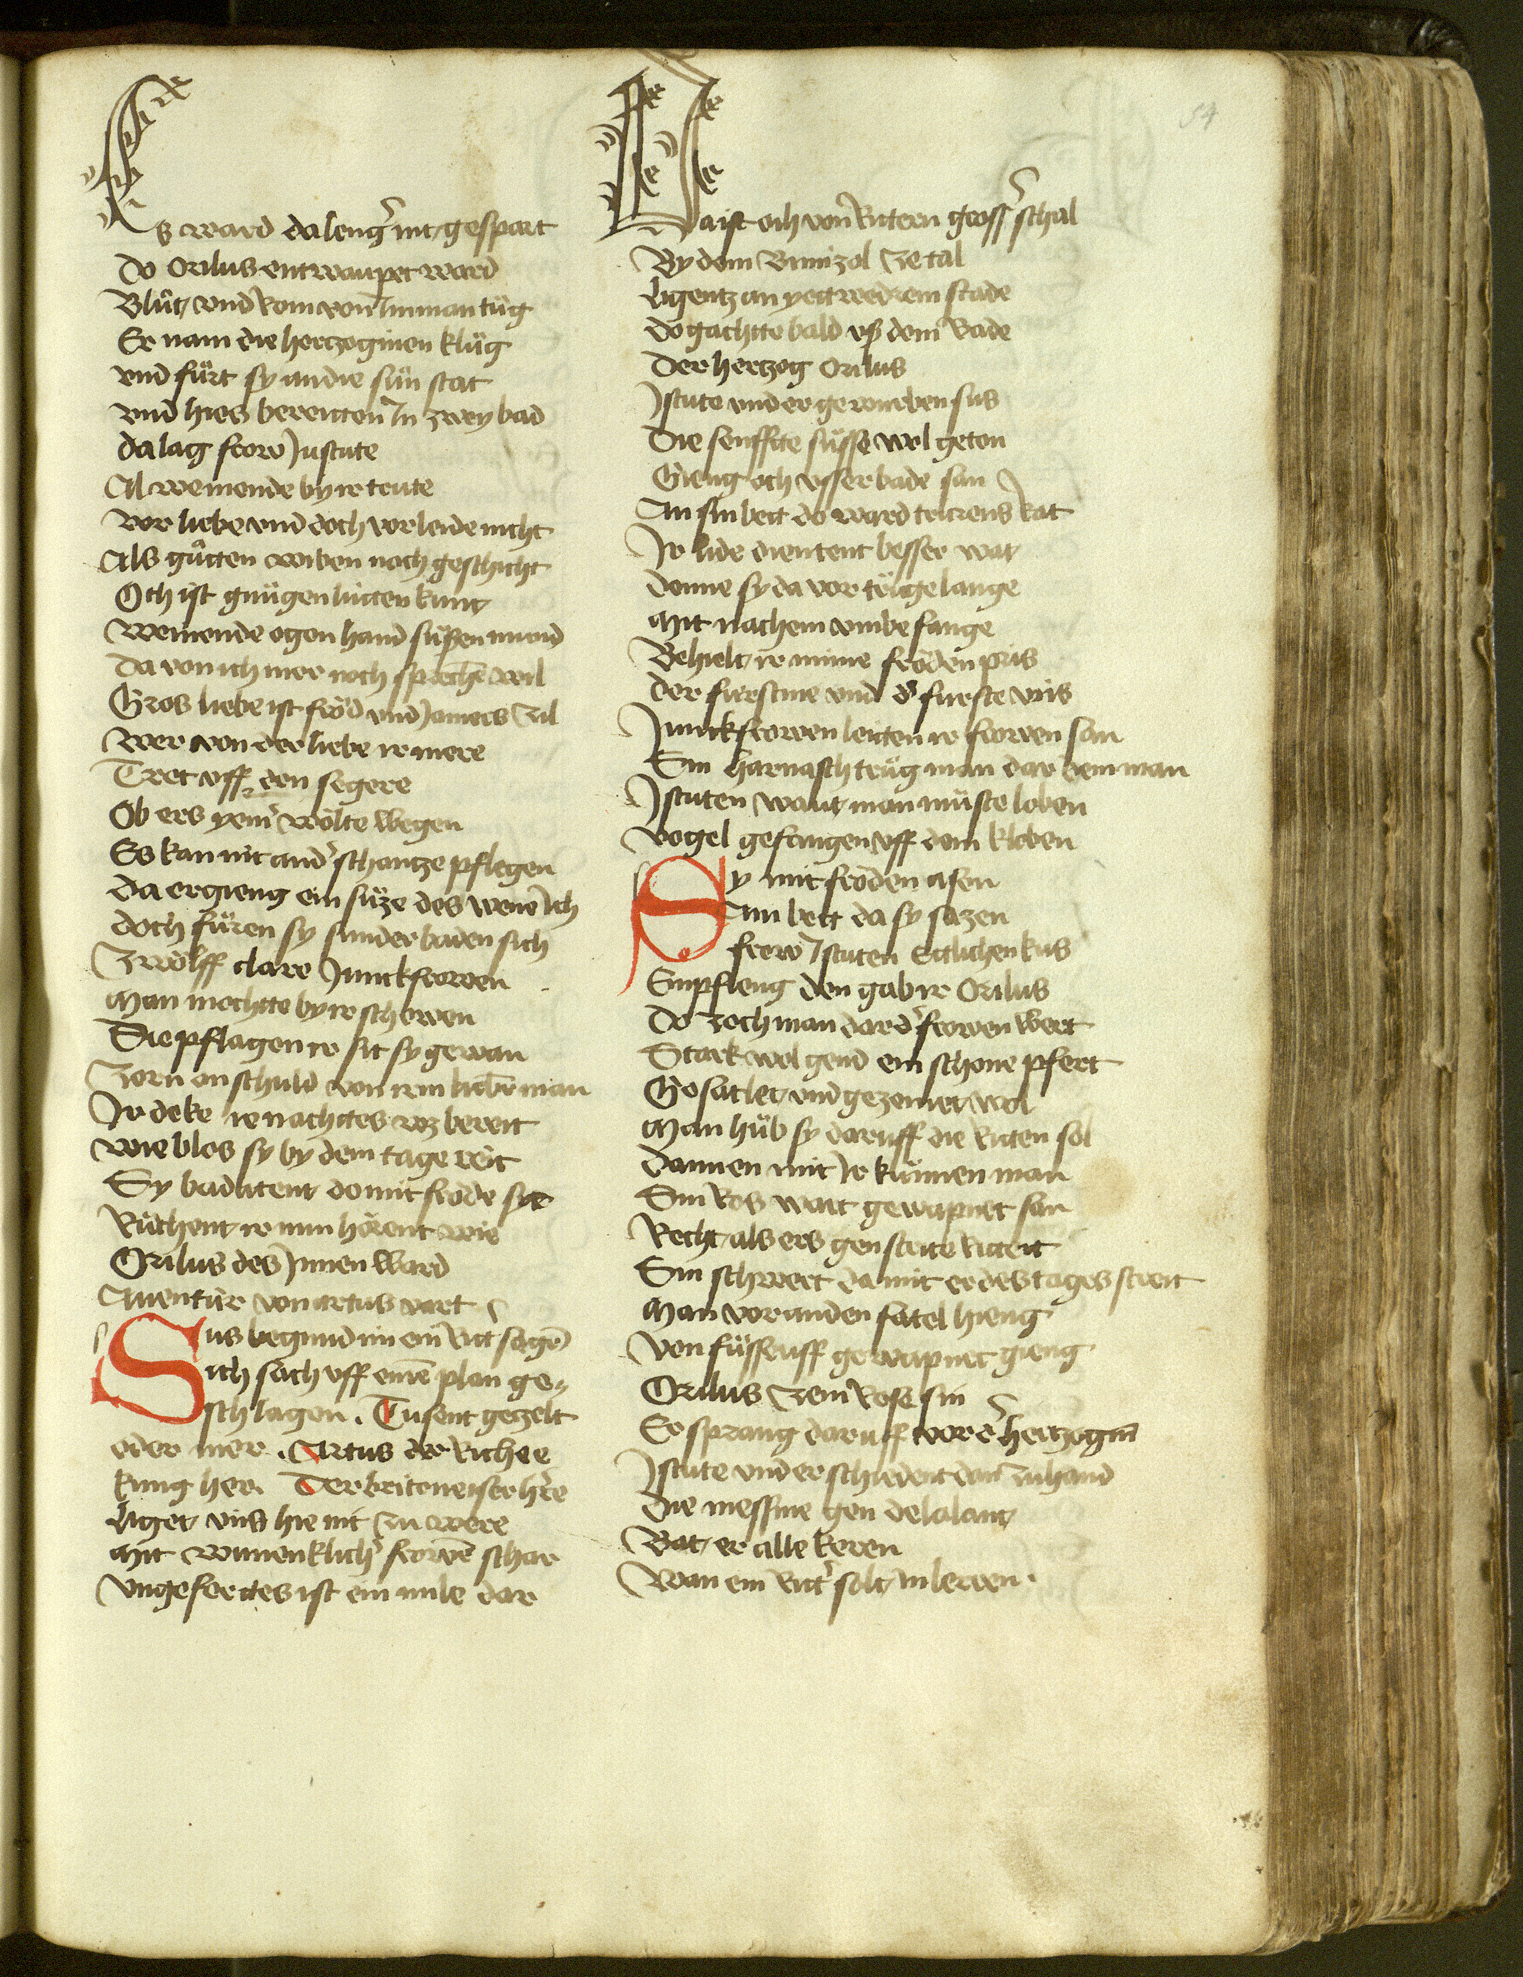 54
Es ward da leng͛ nit gespart
Do Orilus entwaupet ward
Blůt vnd Rom von Im man tůg
Er nam die hertzoginen klůg
vnd fůrt sy an die sůn stat
vnd hies bereitten In zwey bad
da lag frow Jschute
Al weinende by ir trute
vor liebe vnd doch vor leide nicht
Als gůtten wiben noch geschicht
Och ist gnůgen lútten kunt
Weinende ogen hand sússen mund
Da von ich mer noch sprechē wil
Gros liebe ist frǒd vnd Jamers zil
wer von der liebe ir mere
Tret vff den segere
Ob ers yem͛ wǒlte wegen
Es kan nit and͛ schantze pflegen
da ergieng ein sůze des wene Ich
doch fůren sy sunder baden sich
Zwǒlff clare Junckfrowen
Man mochtte by ir schowen
Die pflagen ir sit sy gewan
Zorn on schuld von irm liebē man
Ir deke ir nachttes vz bereit
wie blos sy by dem tage reit
Sy badatent do mit frǒde sye
Růchent ir nun hǒrent wie
Orilus des Innen ward
Auentúr von artus vart
Sus begund im ein Rit͛ sagē
Ich sach vff einē plan ge-
schlagen. Tusent gezelt
oder mer. Artus der Riche
kúng her. Der britoneiser h͛re
Liget vns hie nit zu were
Mit wunenklich͛ frowē schar
vngefertes ist ein mile dar
Da ist och von Rittern gross͛ schal
By dem Brimizol ze tal
Ligentz an yettwedrem stade
do gachtte bald vß dem Bade
Der hertzog Orilus
Jscute vnd er gewurben sus
Die senffte sůsse wol geton
Gieng och vsser bade san
An sin bett do ward trurens Rat
Ir lide dientent besser wat
denne sy da vor trůge lange
Mit nachem vmbe fange
Behielt ir minne frǒden pris
der furstine vnd d͛ furste wis
Junckfrowen leitten ir frowen san
Sin harnasch trůg man dar dem man
Jscuten want man můste loben
vogel gefangen vff dem kloben
Sy mit frǒden asen
Am bett da sy sazen
frow Jscuten Ettlichen kus
Empfieng den gab ir Orilus
Do zoch man dar d͛ frowen wert
Stark wol gend ein schone pfert
Gesatlet vnd gezemet wol
Man hůb sy daruff die Riten sol
dannen mit ir kúnnen man
Sin Ros wart gewapnet san
Recht als ers gen strite Ritteit
Sin schwert da mit er des tages streit
Man vor an den satel hieng
Von fůssen vff gewapnet gieng
Orilus zem Rose sin
Er sprang daruff vor d͛ hertzogin
Jscute vnd er schiedent dan zu hand
Die messine gen de lalant
Bat er alle keren
Wan ein Rit͛ solt in leren.